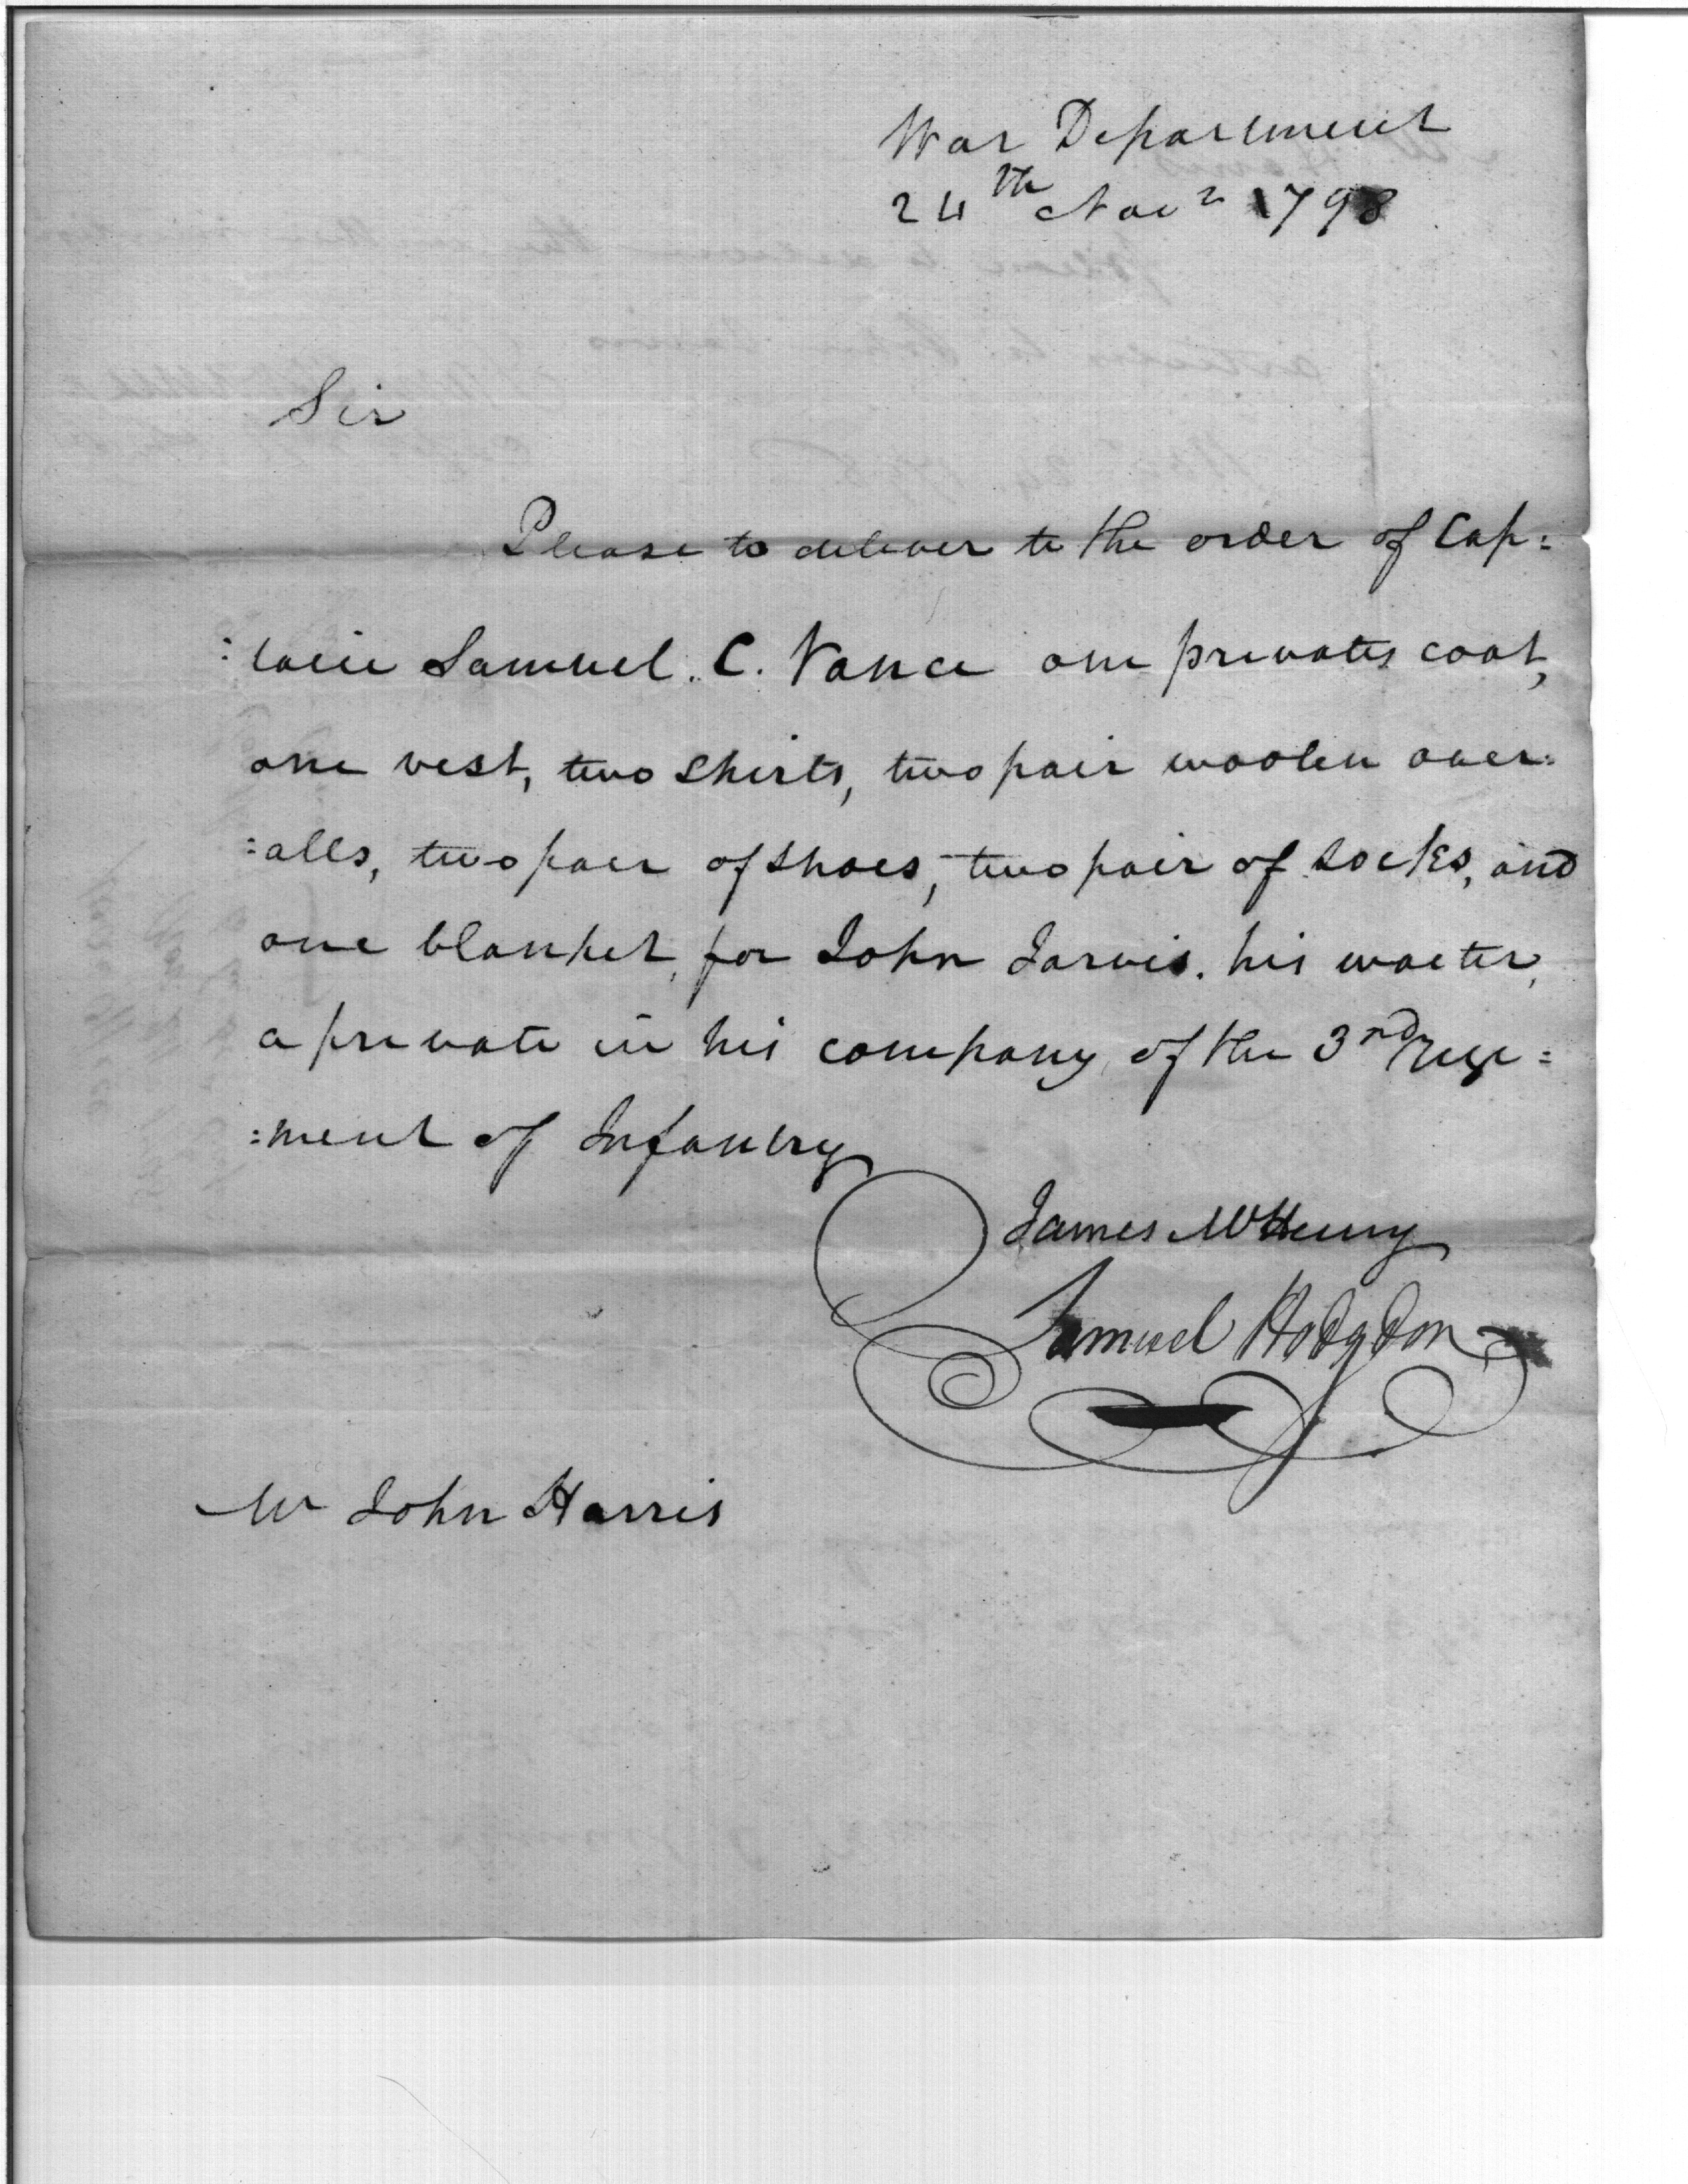 War Department
24th Novr 1798
Sir
Please to deliver to the order of Cap:
:tain Samuel. C. Vance one privates coat,
one vest, two shirts, two pair woolen over:
:alls, two pair of shoes, two pair of socks, and
one blanket, for John Jarvis. his waiter,
a private in his company, of the 3rd regi:
:ment of Infantry
James McHenry
Samuel Hodgdon
Mr John Harris